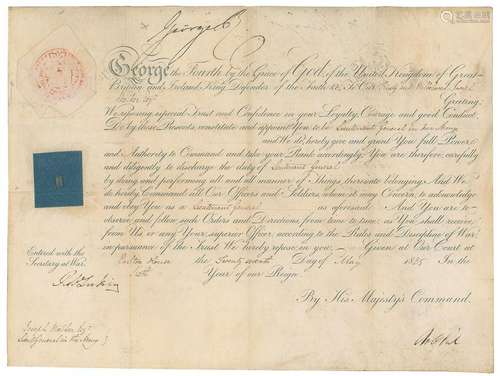 George R.
George the Fourth by the Grace of God, of the United Kingdom of Great
Britain and Ireland King, Defender of the Faith &c. To Our Trusty and Welbeloved
Esqr. Greeting:
We, reposing especial Trust and Confidence in your Loyalty, Courage and good Conduct,
Do by these Presents, constitute and appoint You to be Lieutenant General in the Army
and We do, hereby give and grant You full Power
and Authority to Command and take your Rank accordingly. You are therefore carefully
and diligently to discharge the duty of Lieutenant General
by doing and performing all and all manner of things thereunto belonging: And We
do hereby Command all Our Officers and Soldiers whom it may Concern, to acknowledge
and obey You as a Lieutenant General as aforesaid: And You are to
observe and follow such Orders and Directions from time to time, as You shall receive
from Us, or any Your superior Officer, according to the Rules and Discipline of War,
in pursuance of the Trust We hereby repose in you. Given at Our Court at
Carlton House the Twenty seventh Day of May 1825 In the
Sixth Year of Our Reign
By His Majesty's Command.
Entered with the
Secretary at War.
Joseph Walker Esqr.
Lieut. General in the Army